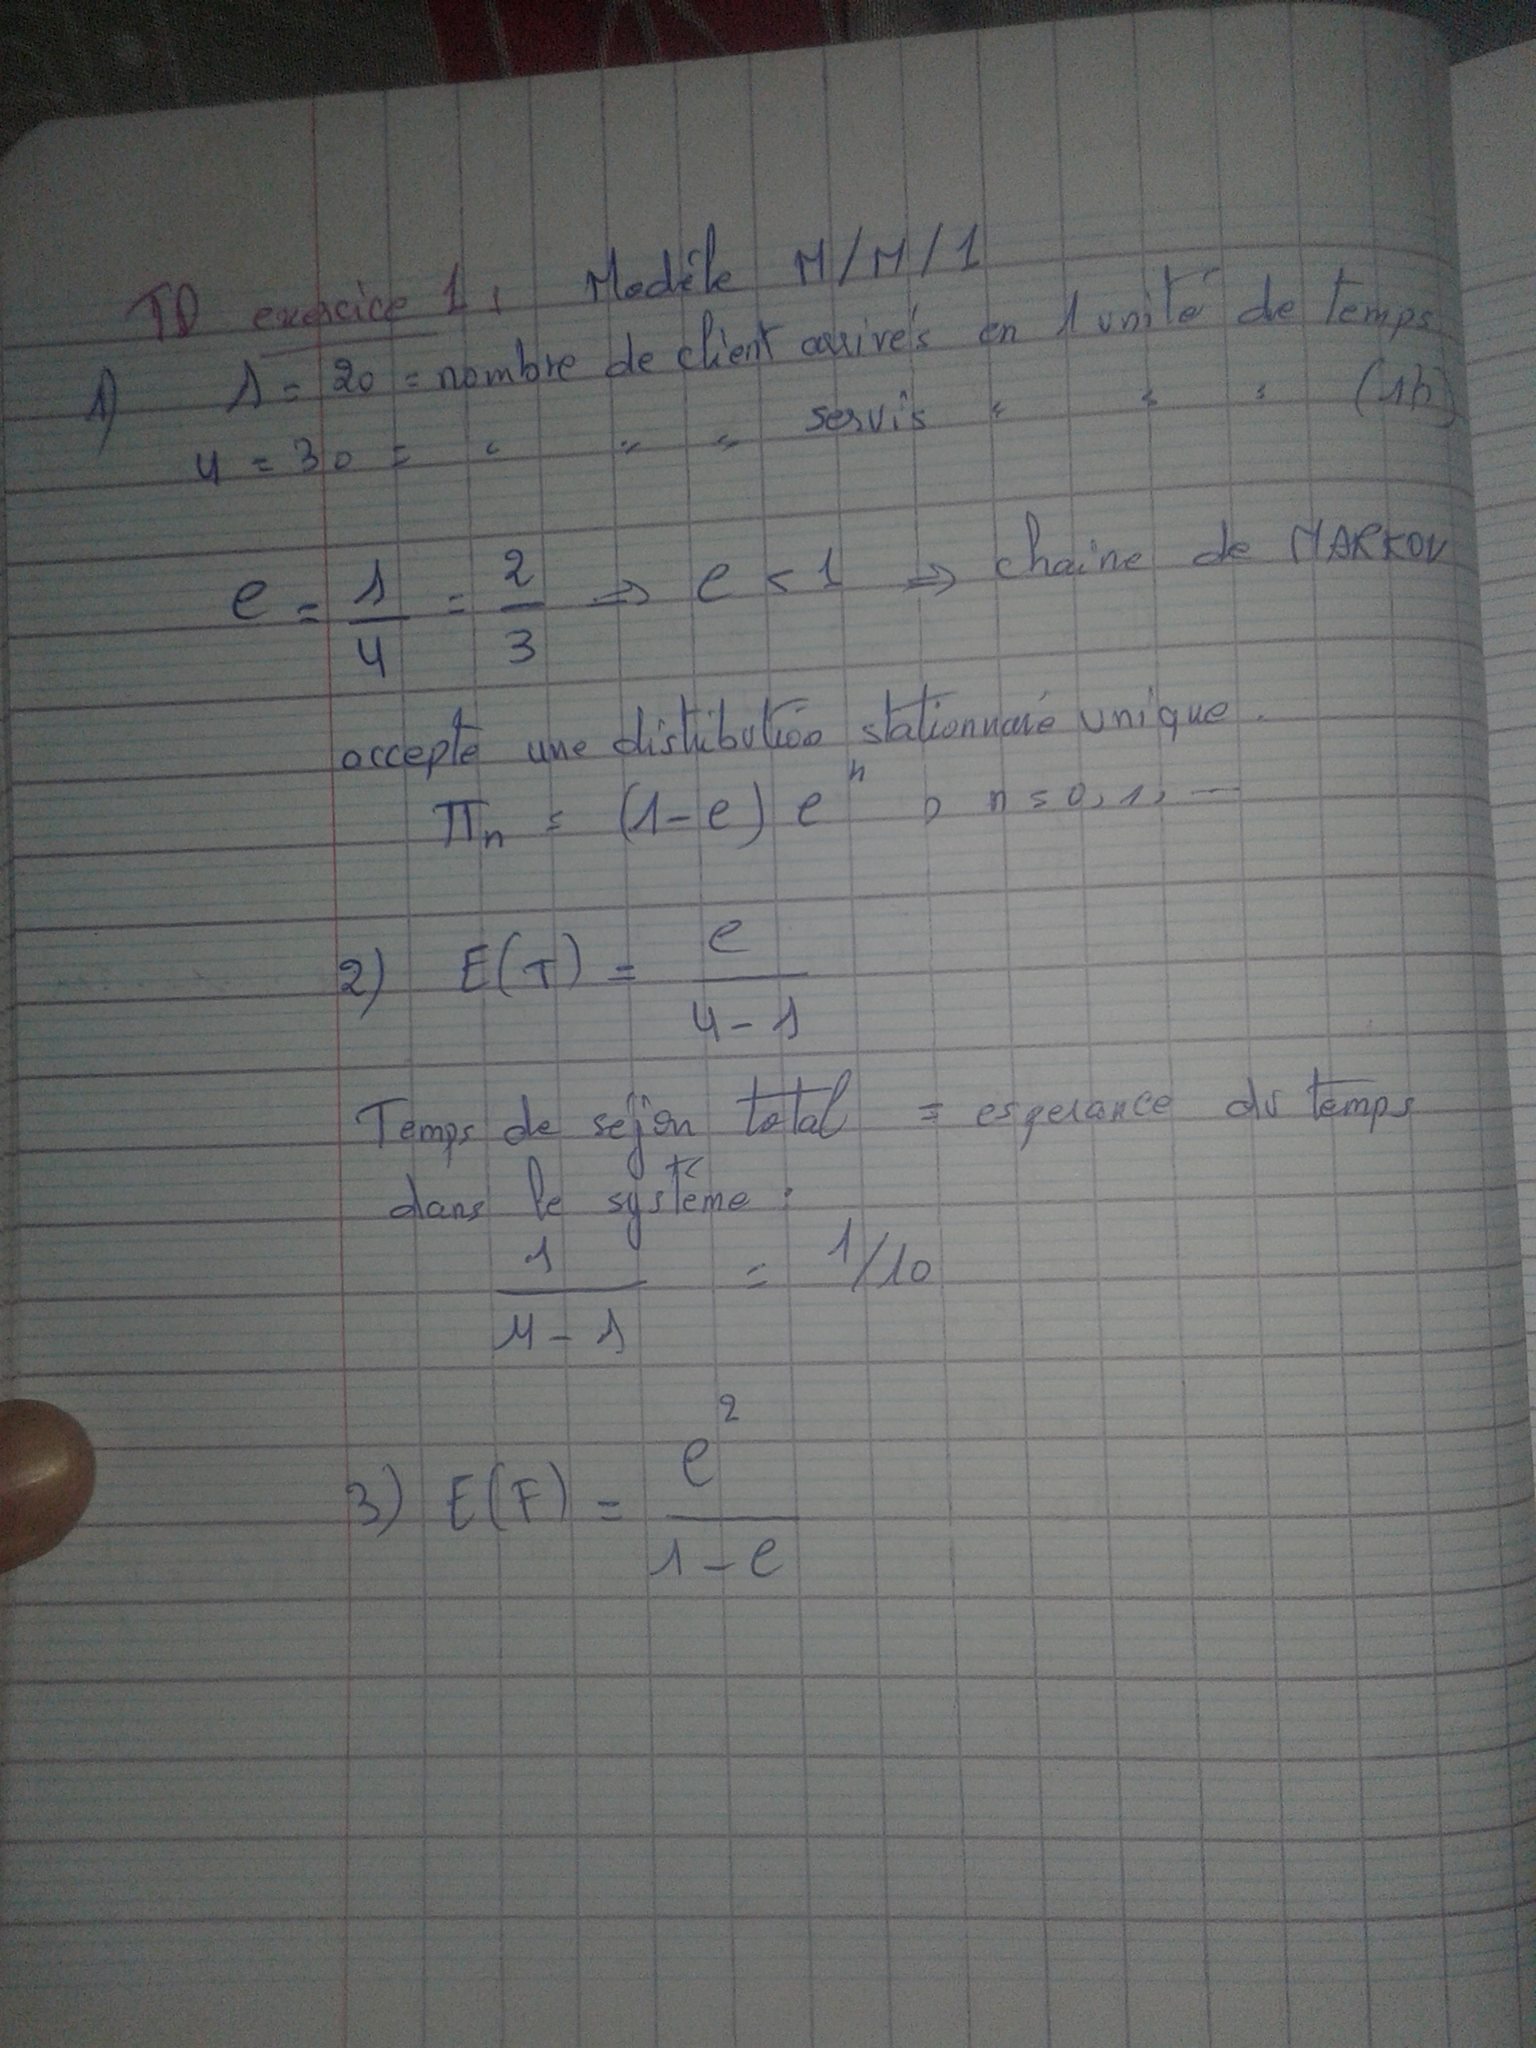 TD exercice 1, Modèle M/M/1
1) λ = 20 = nombre de client arrivés en 1 unité de temps
μ = 30 = " " " servis " " " (1h)
ρ = λ/μ = 2/3 => ρ < 1 => chaine de MARKOV
accepte une distribution stationnaire unique.
Πn = (1-ρ) ρ^n , n = 0, 1, ...
2) E(T) = ρ/(μ-λ)
Temps de séjon total = esperance du temps
dans le système :
1/(μ-λ) = 1/10
3) E(F) = ρ²/(1-ρ)